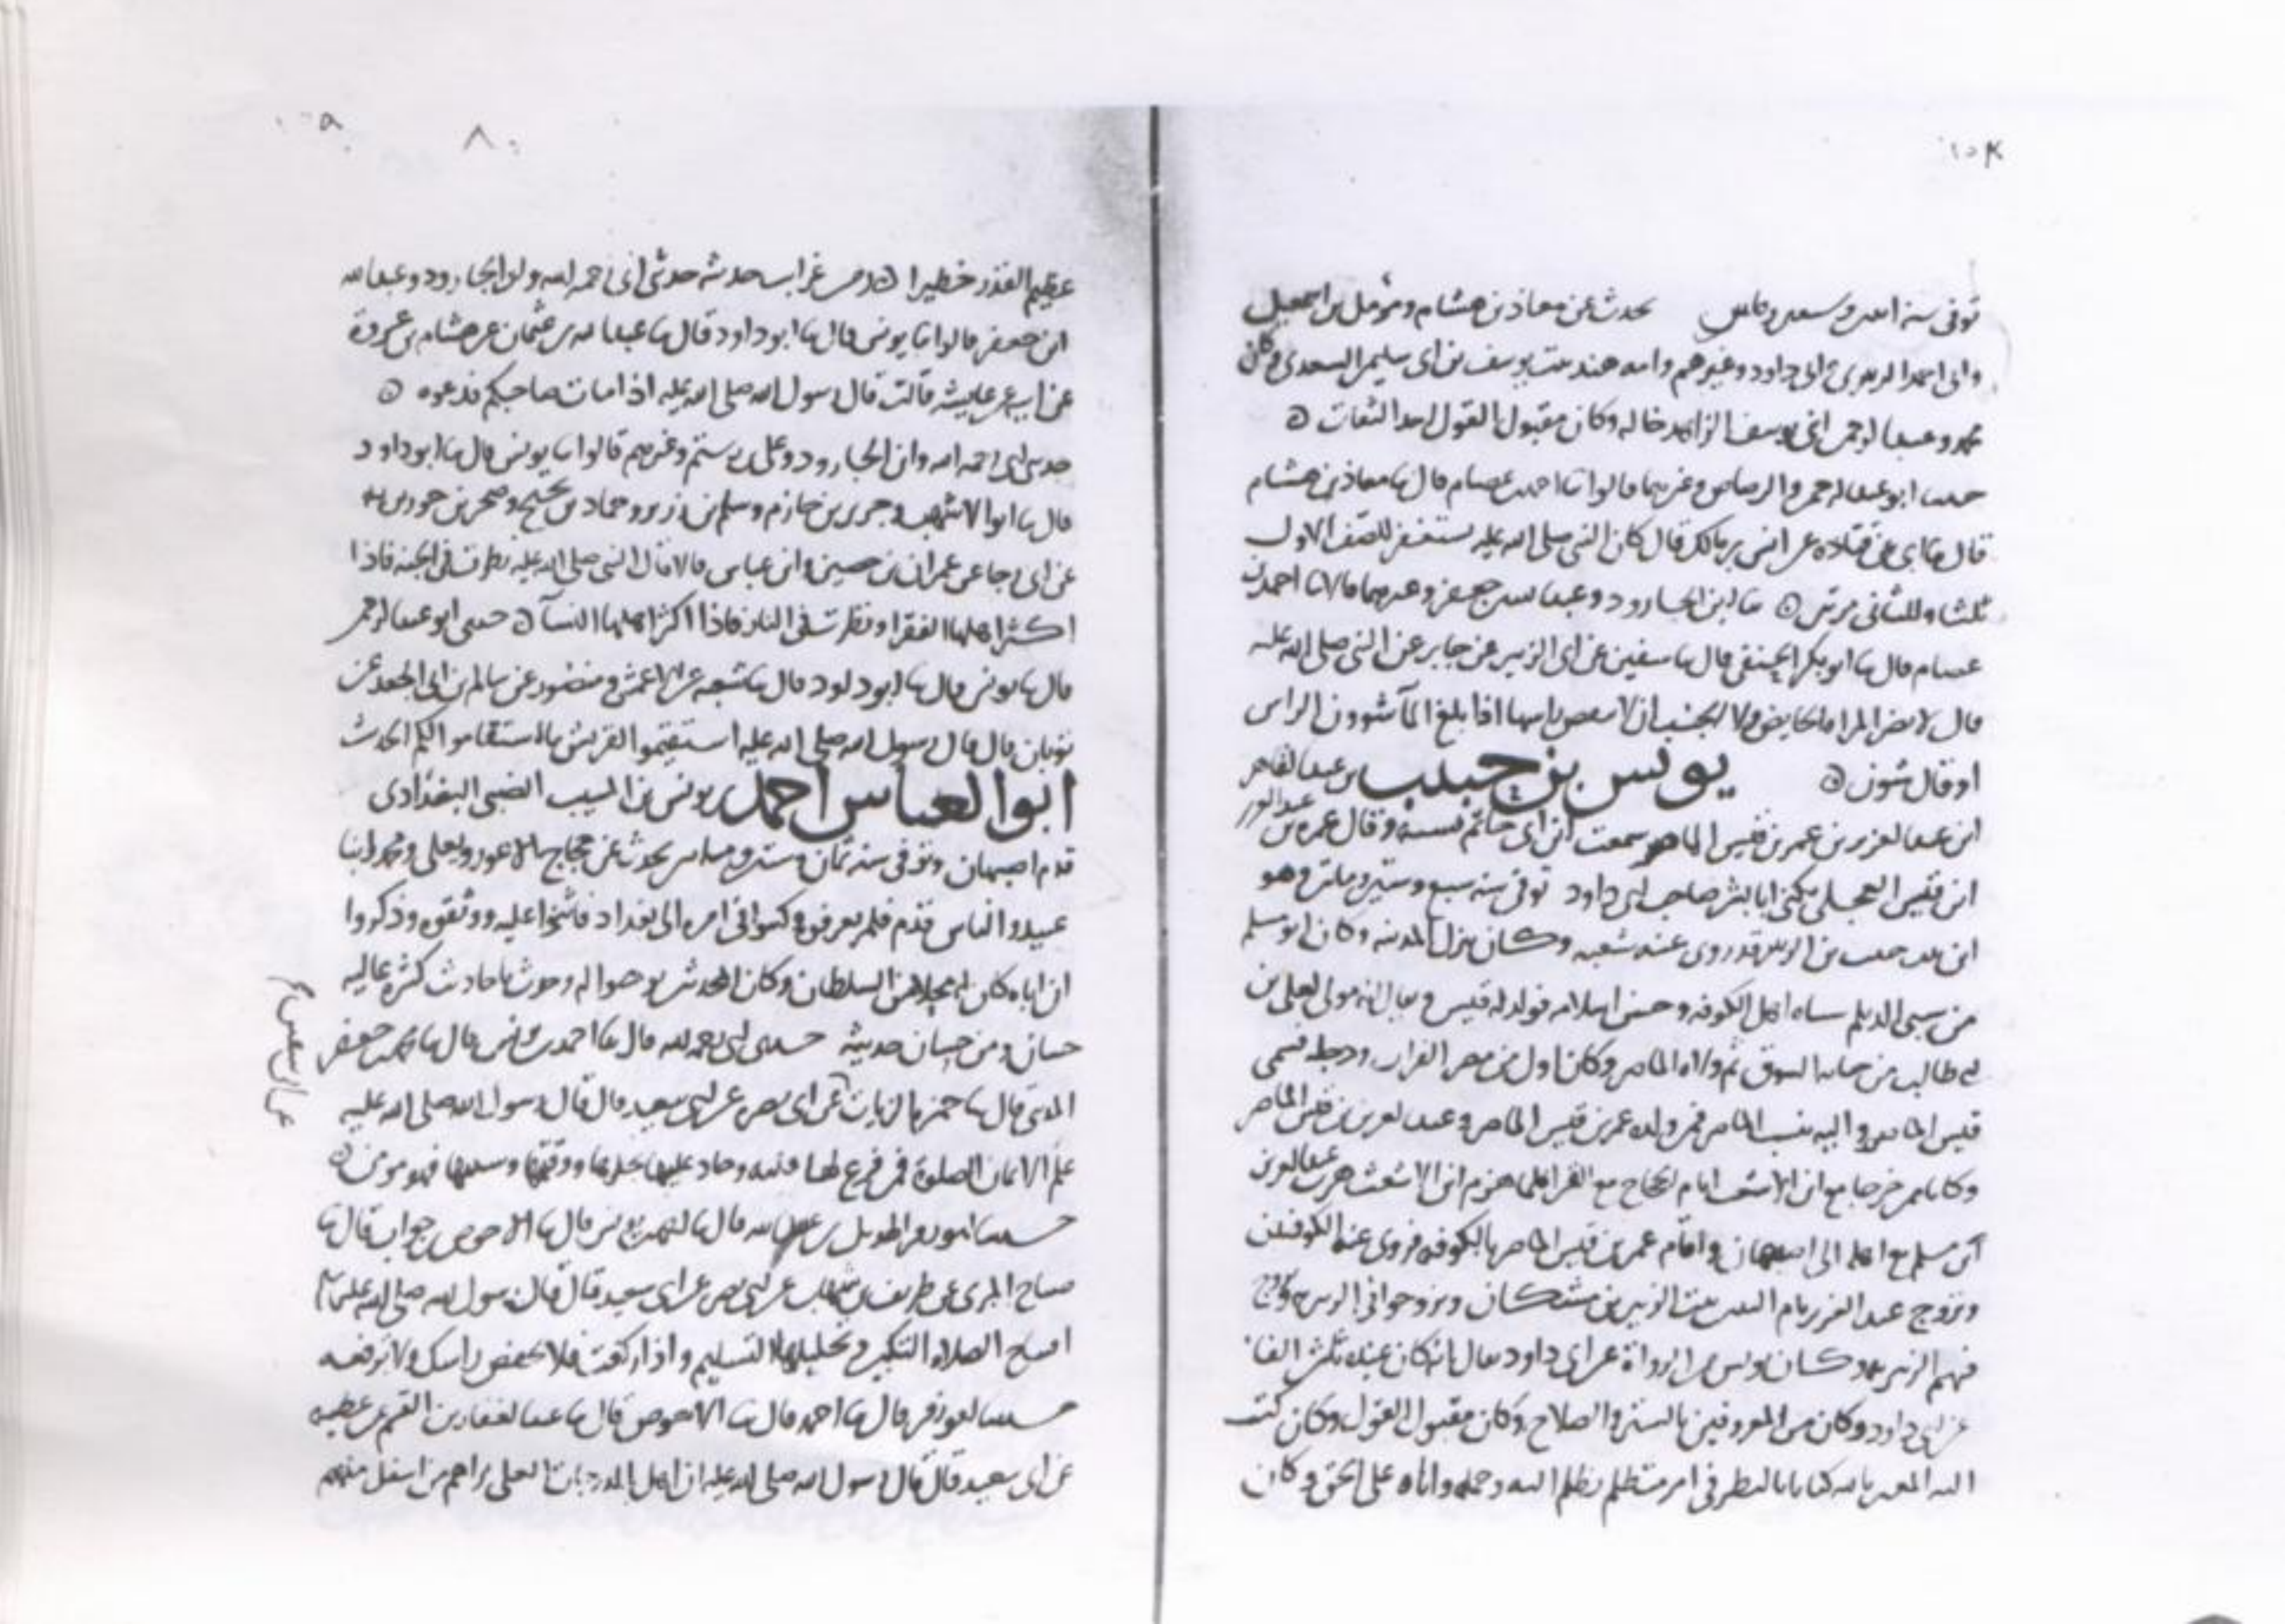 توفى سنة اثنين وسبعين ومائتين يحدث عن معاذ بن هشام ومؤمل بن اسمعيل
وابى احمد الزبيرى وابى داود وغيرهم وامه هند بنت يوسف بن ابى سليم السعدى وكان
محمد وعبد الرحمن ابنى يوسف الزاهد خاله وكان مقبول القول احد الثقات
حدثنا ابو عبد الرحمن والرصاص وغيرهما قالوا ثنا احمد بن عصام قال ثنا معاذ بن هشام
قال ثنا ابى عن قتادة عن انس بن مالك قال كان النبى صلى الله عليه يستغفر للصف الاول
ثلثا وللثانى مرتين ثنا ابن الجارود وعبد الله بن جعفر وغيرهما قالا ثنا احمد بن
عصام قال ثنا ابو بكر الحنفى قال ثنا سفين عن ابى الزبير عن جابر عن النبى صلى الله عليه
قال لا يضر المراة الحايض ولا الجنب ان لا تنقض راسها اذا بلغ الماء شوون الراس
او قال شون يونس بن حبيب بن عبد القاهر
ابن عبد العزيز بن عمر بن قيس الماصر سمعت ابن ابى حاتم نسبه وقال عمر بن
ابن قيس العجلى يكنى ابا بشر صاحب ابى داود توفى سنة سبع وستين ومائتين وهو
ابن بنت حبيب بن الزبير قد روى عنه شعبة وكان ينزل المدينة وكان ابو مسلم
من سبى الديلم سباه اهل الكوفة وحسن اسلامه فولد له قيس ويقال انه مولى لعلى بن
ابى طالب ثم ولاه الماصر وكان اول من مصر الفرات ودجلة فسمى
قيس الماصر واليه ينسب الماصر فمن ولده عمر بن قيس الماصر وعبد العزيز بن قيس الماصر
وكانا ممن خرجا مع ابن الاشعث ايام الحجاج مع القرا فلما هزم ابن الاشعث هرب عبد العزيز
ابن مسلم مع اهله الى اصبهان واقام عمر بن قيس الماصر بالكوفة فروى عنه الكوفيين
وتزوج عبد العزيز بام البنين بنت الزبير بن مشكان وتزوجوا فى الزبيرية وتزوج
فيهم الزبيرية وكان يونس من الرواة عن ابى داود يقال انه كان عنده ثلثين الفا
عن ابى داود وكان من المعروفين بالستر والصلاح وكان مقبول القول وكان كتب
اليه المعتز بالله كتابا بالنظر فى امر متظلم تظلم اليه وحمله واياه على الحق وكان
عظيم القدر خطيرا ومن غرايب حديثه حدثنى ابى رحمه الله وابن الجارود وعبد الله
ابن جعفر قالوا ثنا يونس قال ثنا ابو داود قال ثنا عبد الله بن عثمان عن هشام بن عروة
عن ابيه عن عايشة قالت قال رسول الله صلى الله عليه اذا مات صاحبكم فدعوه
حدثنى ابى رحمه الله وابن الجارود وعلى بن رستم وغيرهم قالوا ثنا يونس قال ثنا ابو داود
قال ثنا ابو الاشهب وجرير بن حازم وسلم بن زرير وحماد بن نجيح وصخر بن جويرية
عن ابى رجا عن عمران بن حصين وابن عباس قالا قال النبى صلى الله عليه نظرت فى الجنة فاذا
اكثر اهلها الفقرا ونظرت فى النار فاذا اكثر اهلها النسآ حدثنى ابو عبد الرحمن
قال ثنا يونس قال ثنا ابو داود قال ثنا شعبة عن الاعمش ومنصور عن سالم بن ابى الجعد عن
ثوبان قال قال رسول الله صلى الله عليه استقيموا لقريش ما استقاموا لكم الحديث
ابو العباس احمد بن يونس بن المسيب الضبى البغدادى
قدم اصبهان وتوفى سنة ثمان وستين ومائتين يحدث عن حجاج الاعور ويعلى ومحمد ابنا
عبيد والناس قدم فلم يعرفوه وكتبوا فى امره الى بغداد فاثنوا عليه ووثقوه وذكروا
ان اباه كان السلطان وكان المحدث وحدث باحاديث كثيرة عالية
حسان ومن حسان حديثه حدثنى ابى رحمه الله قال ثنا احمد بن يونس قال ثنا محمد بن جعفر
المدائنى قال ثنا حمزة الزيات عن ابى نضرة عن ابى سعيد قال قال رسول الله صلى الله عليه
علم الايمان الصلوة فمن فرغ لها قلبه وحاد عليها بحدها ووقتها وسننها فهو مومن
حدثنا عبد الله قال ثنا احمد بن يونس قال ثنا الاحوص بن جواب قال ثنا
صباح المزنى عن طريف بن شهاب عن ابى نضرة عن ابى سعيد قال قال رسول الله صلى الله عليه
افتتاح الصلاة التكبير وتحليلها التسليم واذا ركعت فلا تخفض راسك ولا ترفعه
حدثنا قال ثنا احمد قال ثنا الاحوص قال ثنا عبد الغفار بن القسم عن عطية
عن ابى سعيد قال قال رسول الله صلى الله عليه ان اهل الدرجات العلى يراهم من اسفل منهم